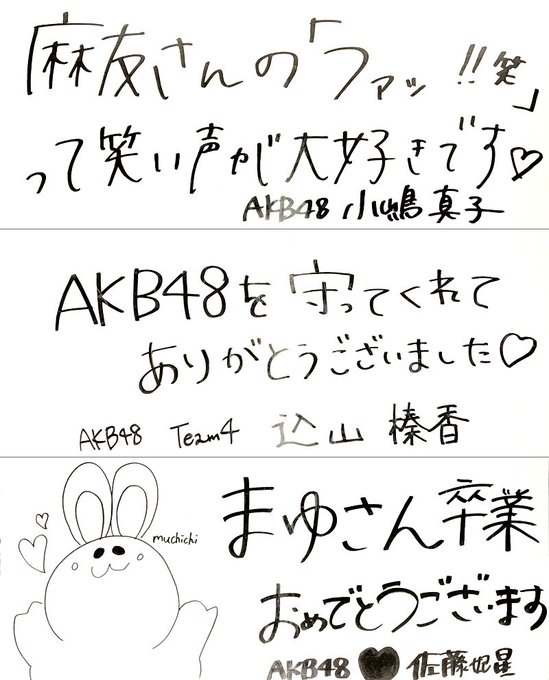 麻友さんの「ファッ!!笑」
って笑い声が大好きです♡
AKB48 小嶋真子
AKB48を守ってくれて
ありがとうございました♡
AKB48 Team4 込山榛香
muchichi
まゆさん卒業
おめでとうございます
AKB48 ♥ 佐藤妃星